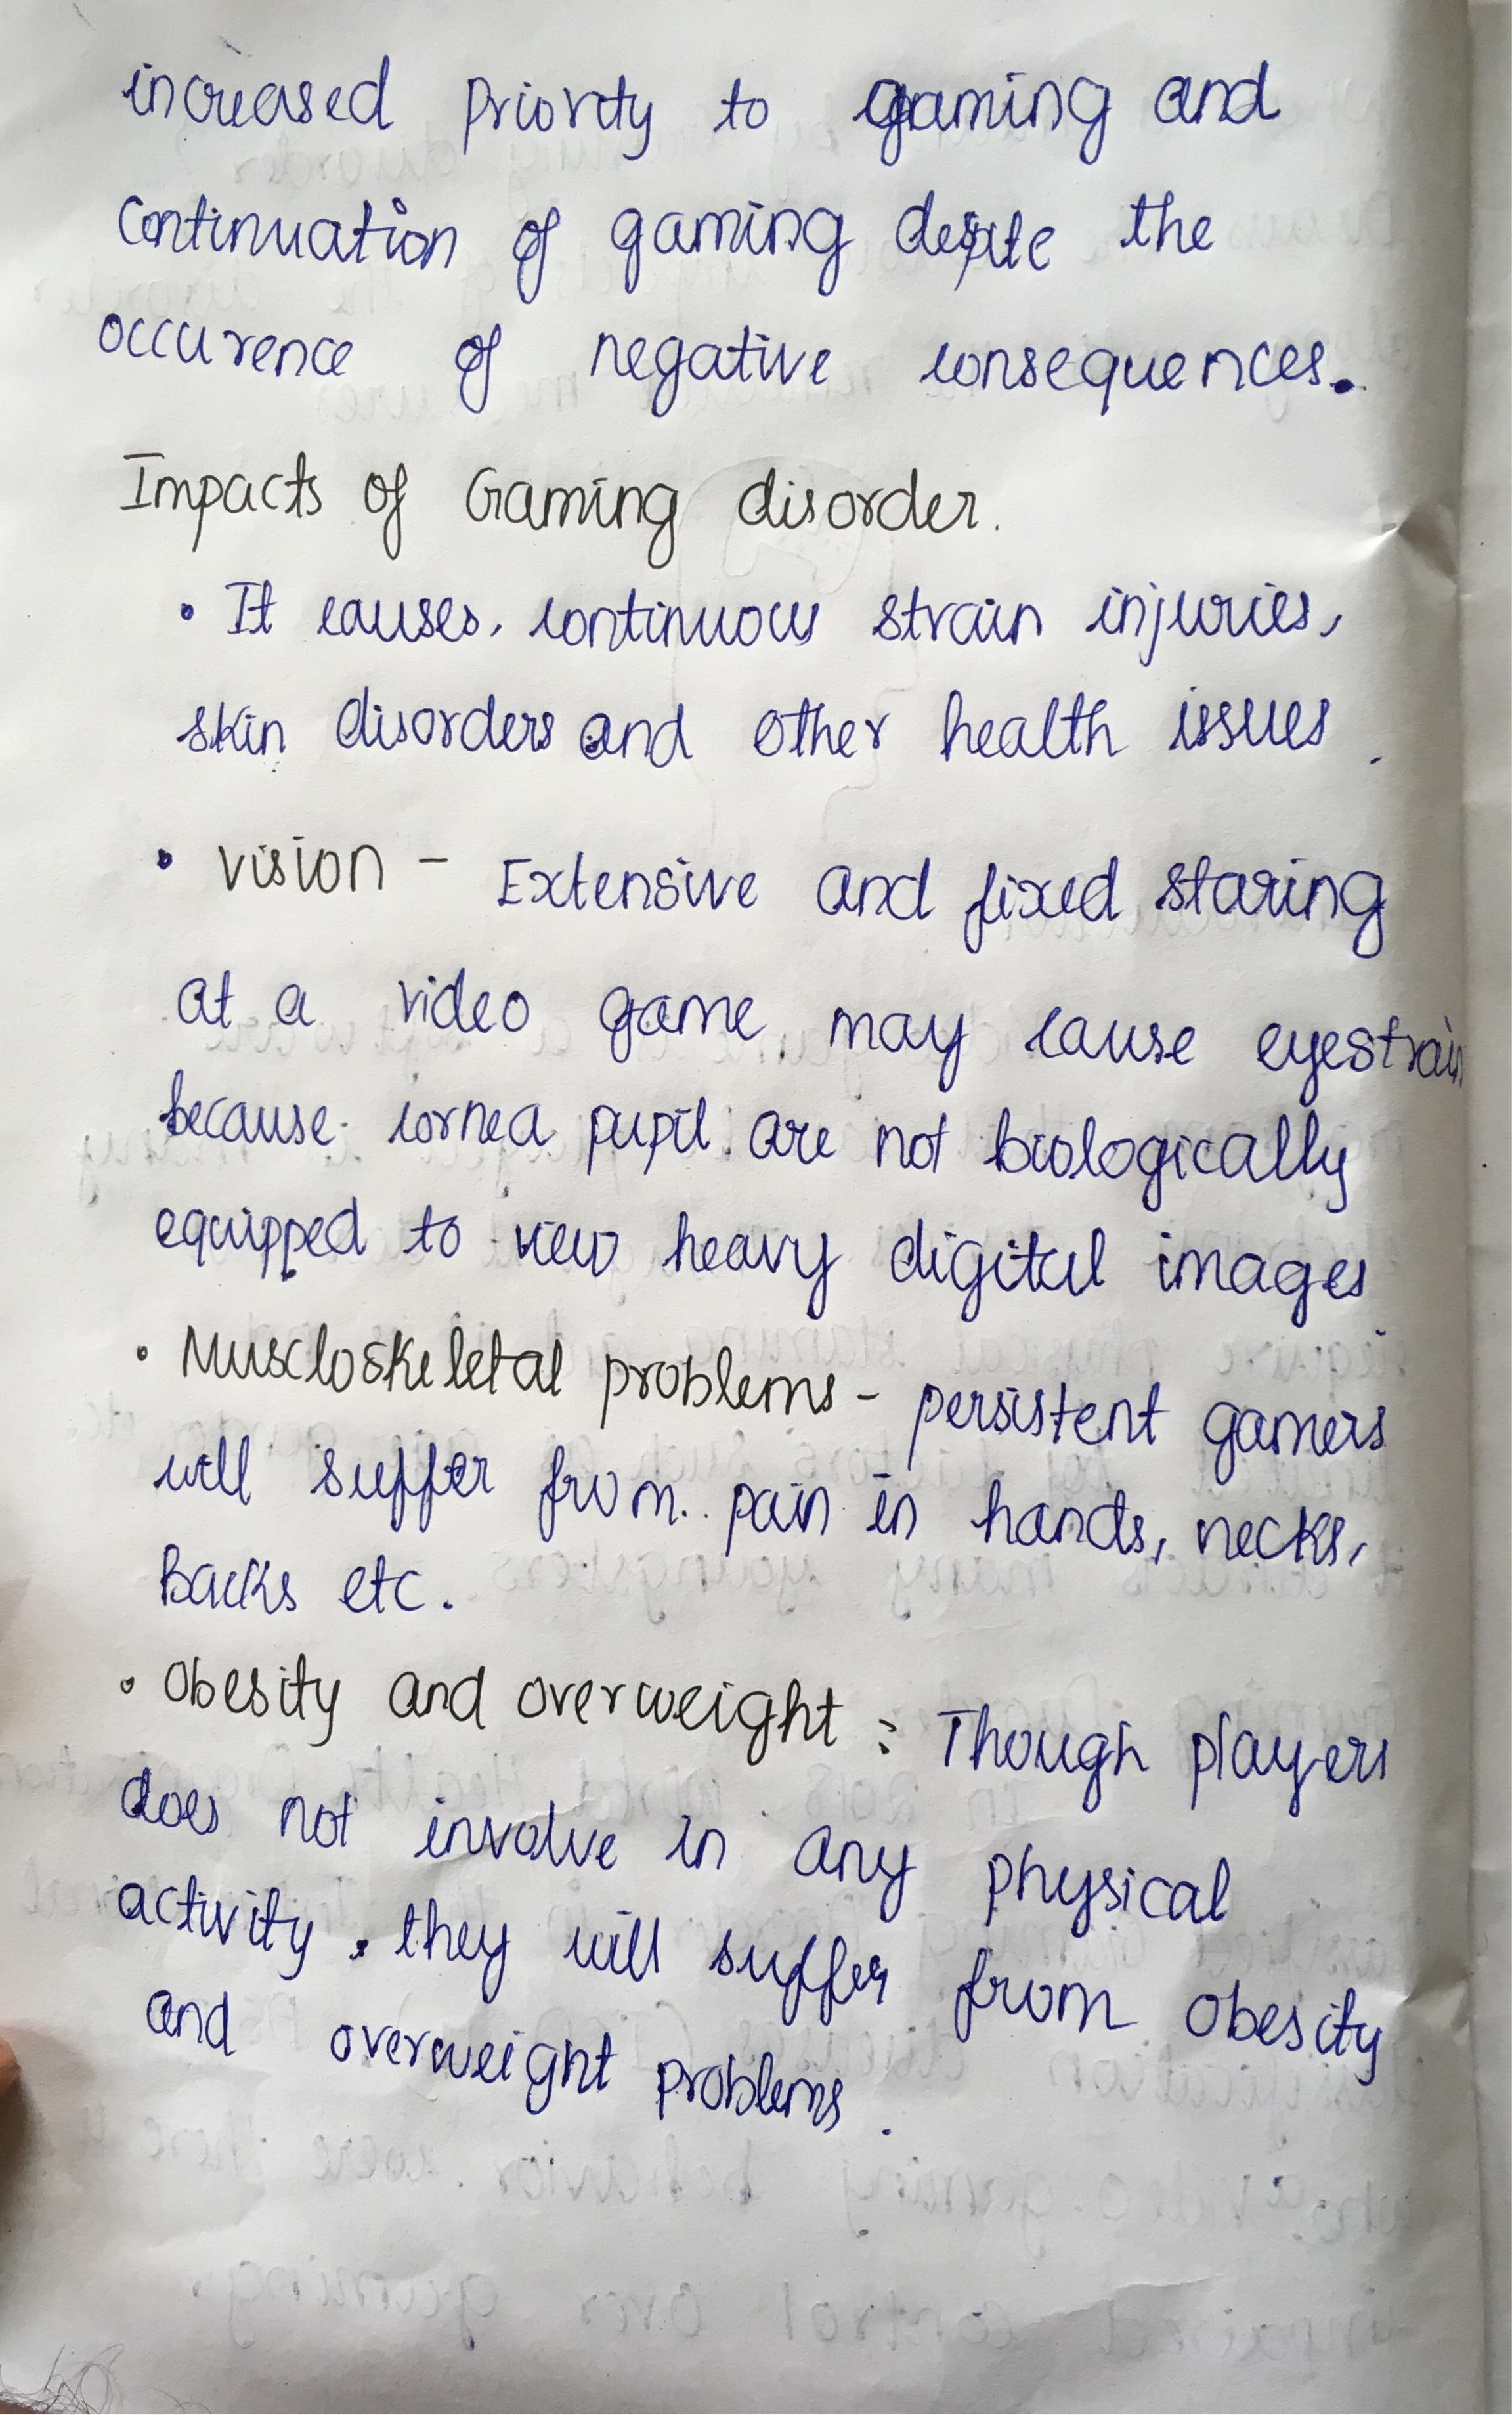 increased Priority to gaming and
Continuation of gaming despite the
occurence of negative consequences.
Impacts of Gaming disorder.
• It causes, continuous strain injuries,
skin disorders and other health issues.
• Vision - Extensive and fixed staring
at a video game may cause eyestrain
because cornea pupil are not biologically
equipped to view heavy digital images
• Muscloskeletal problems - persistent gamers
will suffer from pain in hands, necks,
Backs etc.
• Obesity and overweight : Though players
does not involve in any physical
activity. they will suffer from obesity
and overweight problems.